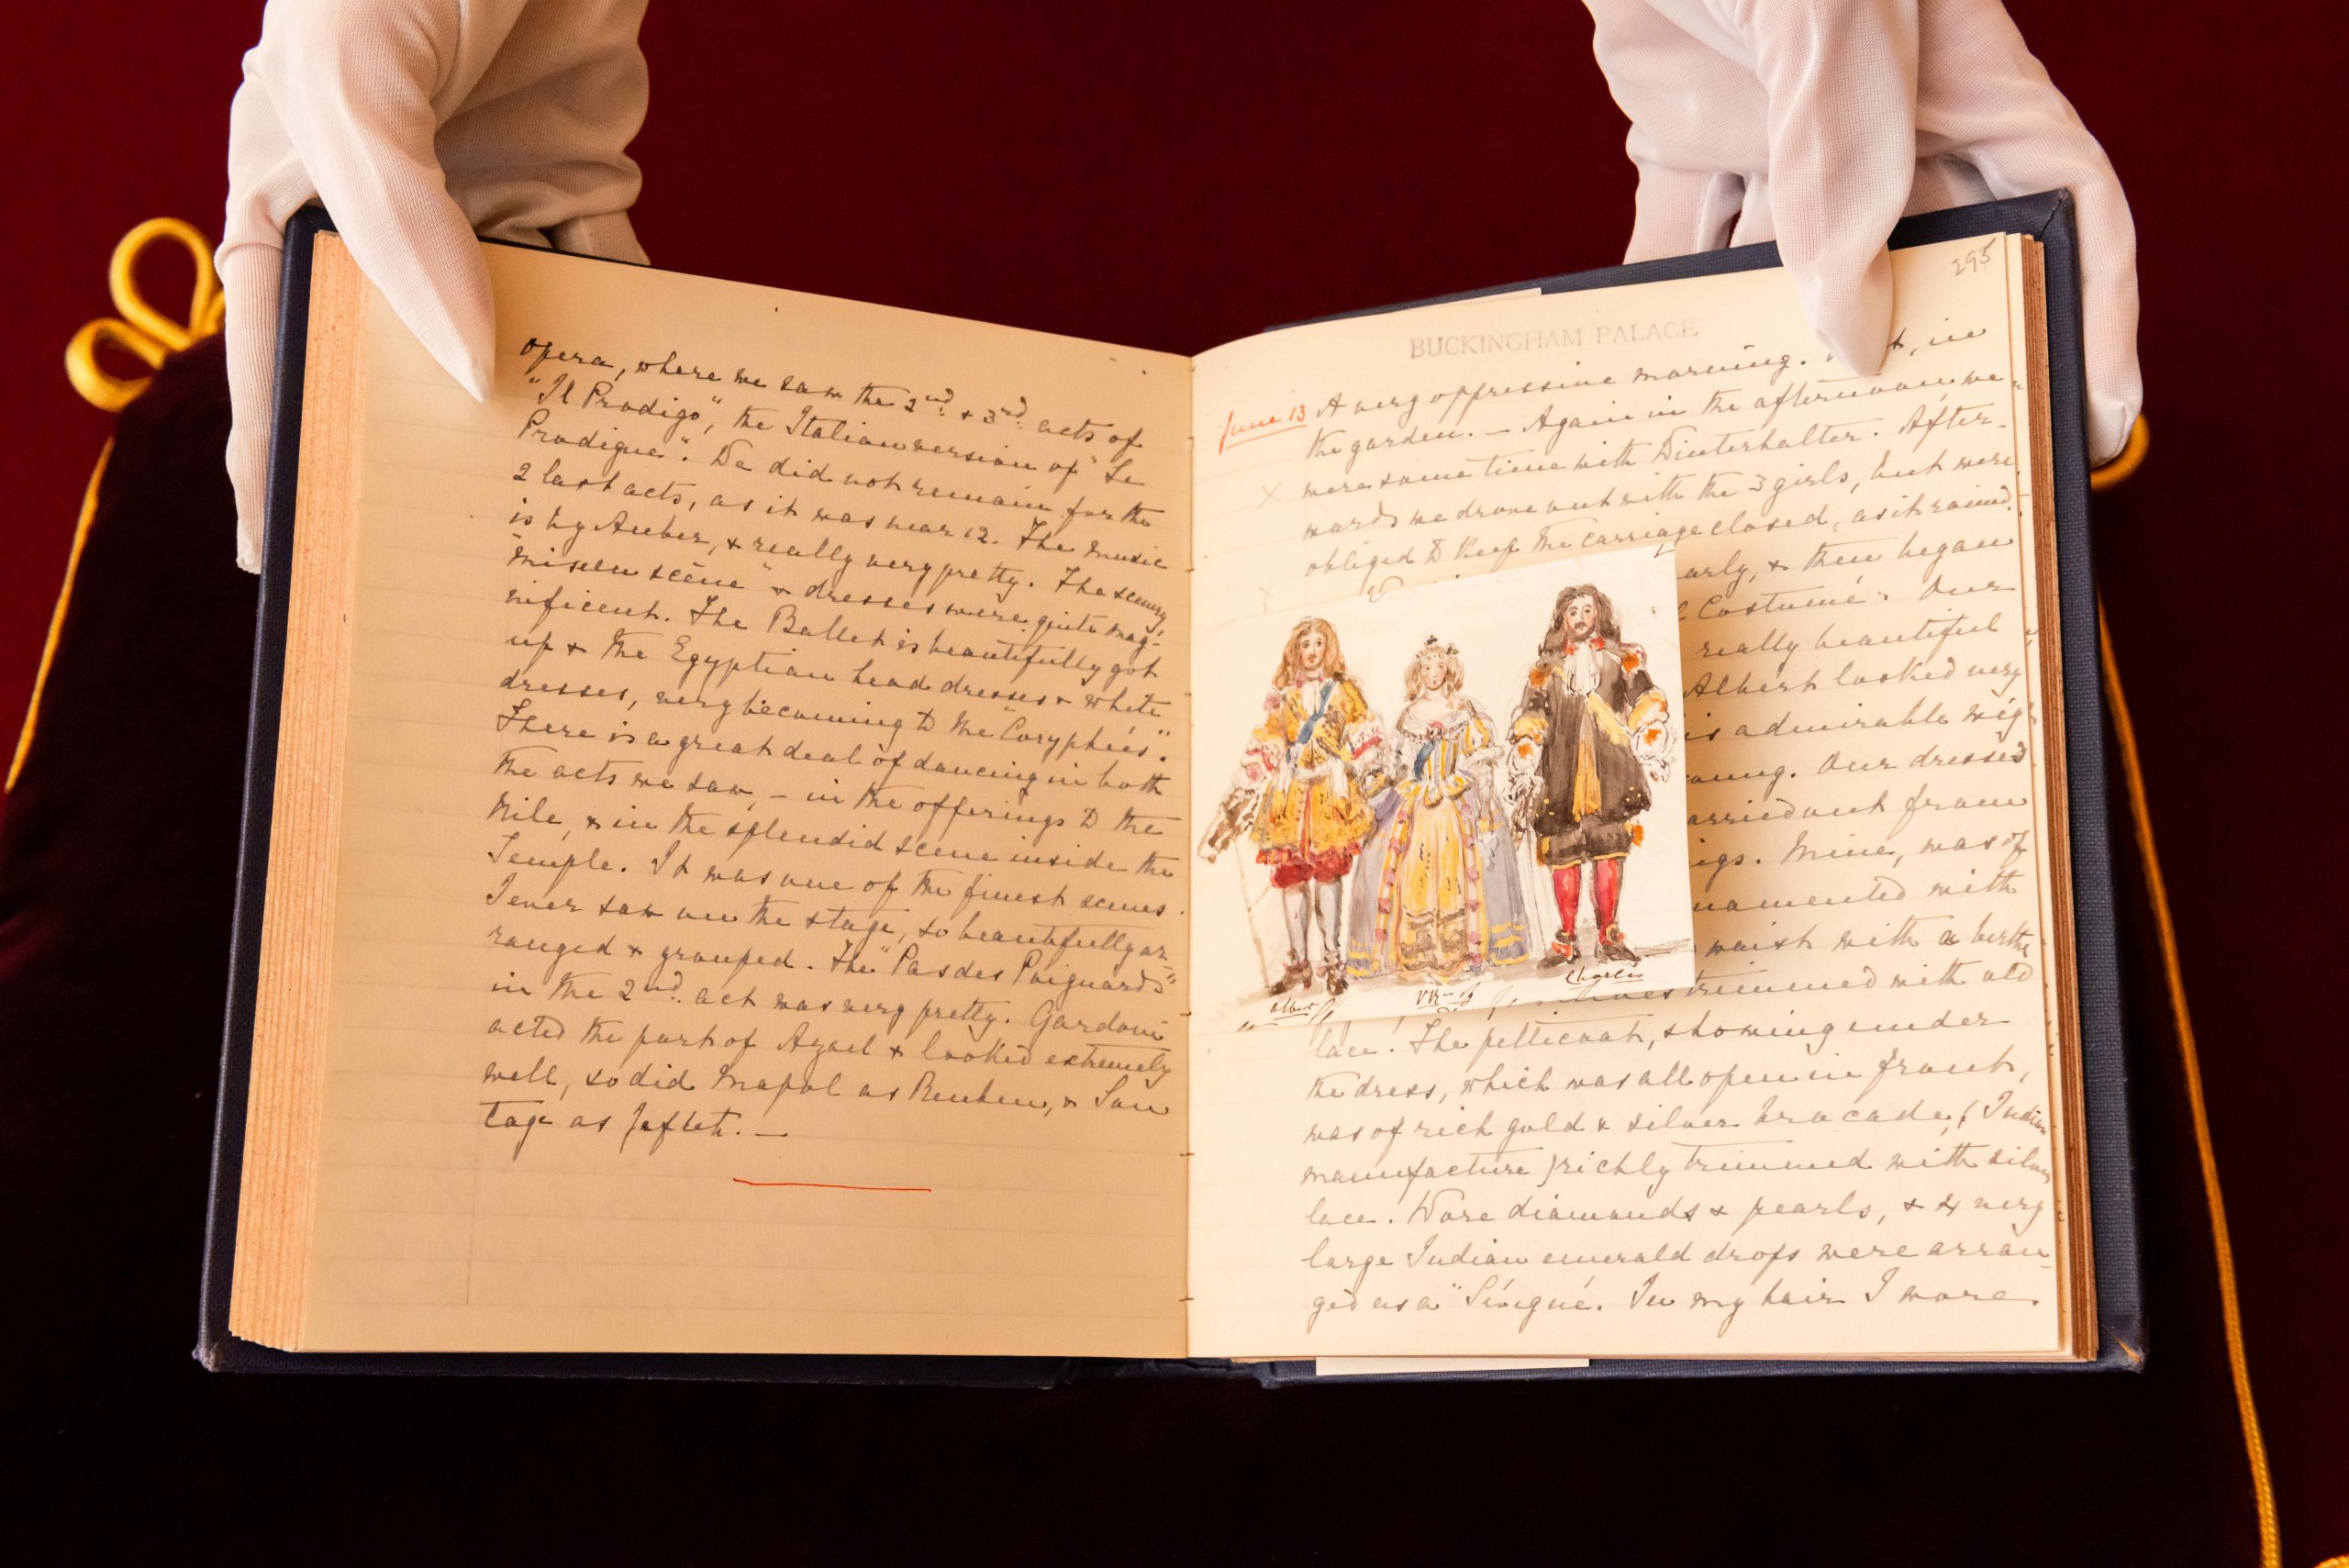 opera, where we saw the 2nd. & 3rd. acts of
"Il Prodigo", the Italian version of "Le
Prodigue". We did not remain for the
2 last acts, as it was near 12. The music
is by Auber, & really very pretty. The scenery,
"mise en scène" & dresses were quite mag-
nificent. The Ballet is beautifully got
up & the Egyptian head dresses & white
dresses, very becoming to the "Coryphées".
There is a great deal of dancing in both
the acts we saw, – in the offerings to the
Nile, & in the splendid scene inside the
Temple. It was one of the finest scenes
I ever saw on the stage, so beautifully ar-
ranged & grouped. The "Pas des Poignards"
in the 2nd. act was very pretty. Gardoni
acted the part of Azael & looked extremely
well, so did Massol as Reuben, & Son
tag as Jeftet. —
295
BUCKINGHAM PALACE
June 13 A very oppressive morning. in
the garden. — Again in the afternoon, we
were some time with Winterhalter. After-
wards we drove out with the 3 girls, but were
obliged to keep the carriage closed, as it rained.
arly, & then began
Costumé". Our
really beautiful
Albert looked very
is admirable wig
oung. Our dresses
arried out from
ngs. Mine, was of
namented with
waist with a berthe
trimmed with old
Albert
VR
Charles
lace. The petticoat, showing under
the dress, which was all open in front,
was of rich gold & silver brocade, (Indian
manufacture) richly trimmed with silver
lace. Wore diamonds & pearls, & 4 very
large Indian emerald drops were arran-
ged as a "Sévigné. In my hair I wore